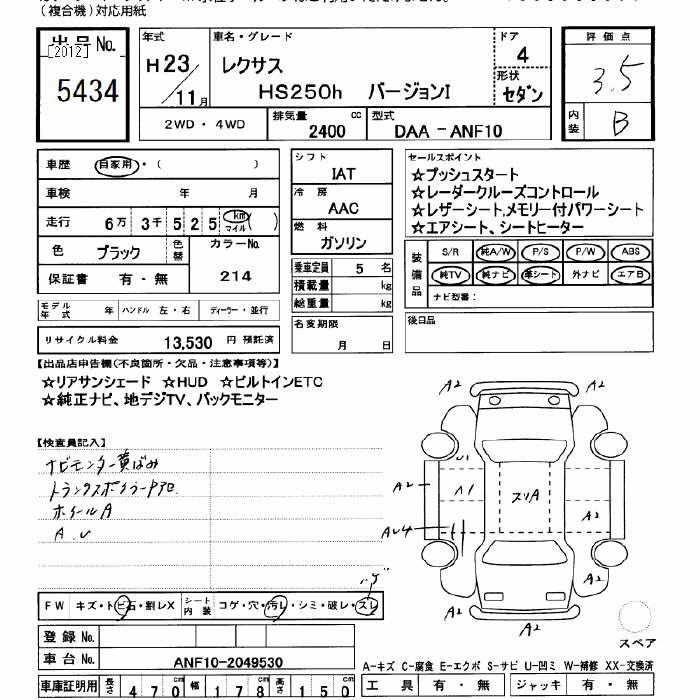 (複合機)対応用紙
出品No.
[2012]
5434
年式
H23/11月
車名・グレード
レクサス
HS250h バージョンI
ドア
4
形状
セダン
評価点
3.5
内装
B
2WD・4WD
排気量
2400
cc
型式
DAA-ANF10
車歴 自家用・( )
車検 年 月
走行 6万 3千 5 2 5 km マイル ( )
色 ブラック 色替
カラーNo.
214
保証書 有・無
モデル年式 年 ハンドル 左・右 ディーラー・並行
リサイクル料金 13,530 円 預託済
シフト
IAT
冷房
AAC
燃料
ガソリン
乗車定員 5 名
積載量 kg
総重量 kg
名変期限
月 日
セールスポイント
☆プッシュスタート
☆レーダークルーズコントロール
☆レザーシート,メモリー付パワーシート
☆エアシート、シートヒーター
装備品
S/R 純A/W P/S P/W ABS
純TV 純ナビ 革シート 外ナビ エアB
ナビ型番:
後日品
【出品店申告欄(不良箇所・欠品・注意事項等)】
☆リアサンシェード ☆HUD ☆ビルトインETC
☆純正ナビ、地デジTV、バックモニター
【検査員記入】
ナビモニター黄ばみ
ホイールA
A.U
FW キズ・トビ石・割レX シート内装 コゲ・穴・汚レ・シミ・破レ・スレ
登録No.
車台No. ANF10-2049530
車庫証明用 長さ 470 cm 幅 178 cm 高さ 150 cm
A2
A2
U1
A2
A1
スリA
A2
AU4
A2
A2
A2
A2
スペア
A-キズ C-腐食 E-エクボ S-サビ U-凹ミ W-補修 XX-交換済
工具 有・無 ジャッキ 有・無